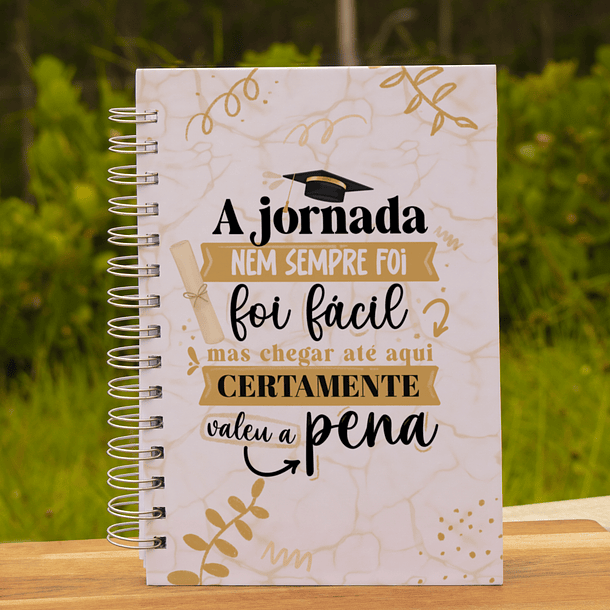 A jornada
NEM SEMPRE FOI
foi fácil
mas chegar até aqui
CERTAMENTE
valeu a pena